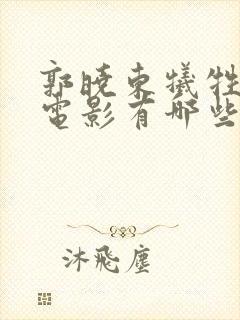 郭晓东犧牲
電影有哪些
沐飛塵